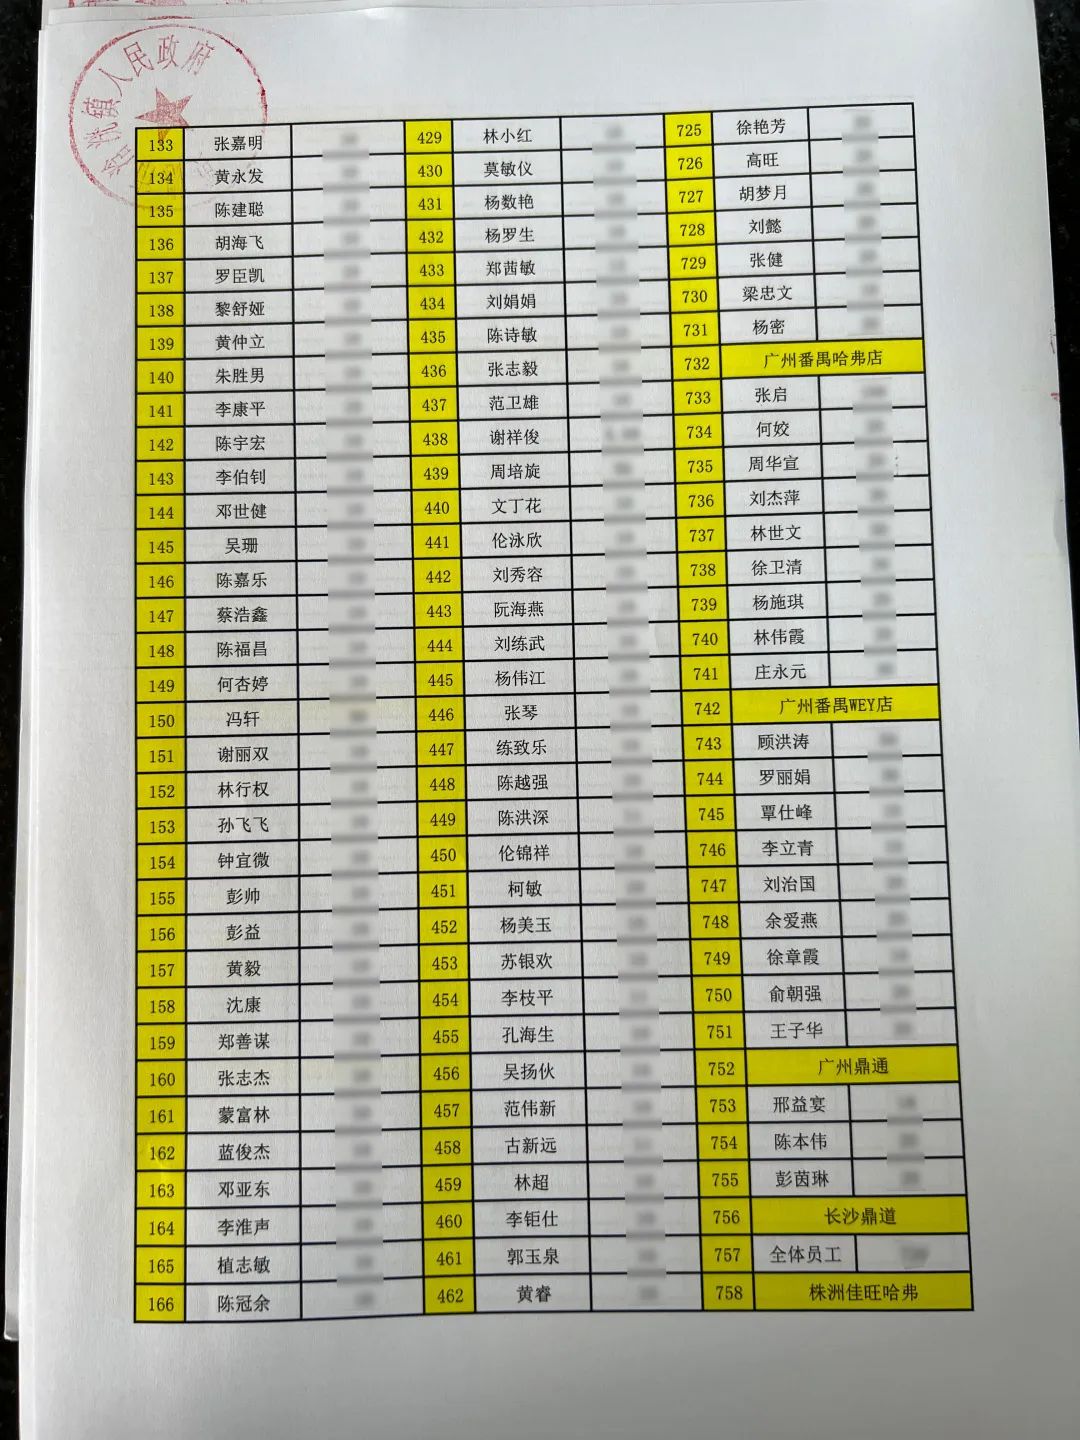 镇人民政府
133 张嘉明 429 林小红 725 徐艳芳
134 黄永发 430 莫敏仪 726 高旺
135 陈建聪 431 杨数艳 727 胡梦月
136 胡海飞 432 杨罗生 728 刘懿
137 罗臣凯 433 郑茜敏 729 张健
138 黎舒娅 434 刘娟娟 730 梁忠文
139 黄仲立 435 陈诗敏 731 杨密
140 朱胜男 436 张志毅 732 广州番禺哈弗店
141 李康平 437 范卫雄 733 张启
142 陈宇宏 438 谢祥俊 734 何姣
143 李伯钊 439 周培旋 735 周华宣
144 邓世健 440 文丁花 736 刘杰萍
145 吴珊 441 伦泳欣 737 林世文
146 陈嘉乐 442 刘秀容 738 徐卫清
147 蔡浩鑫 443 阮海燕 739 杨施琪
148 陈福昌 444 刘练武 740 林伟霞
149 何杏婷 445 杨伟江 741 庄永元
150 冯轩 446 张琴 742 广州番禺WEY店
151 谢丽双 447 练致乐 743 顾洪涛
152 林行权 448 陈越强 744 罗丽娟
153 孙飞飞 449 陈洪深 745 覃仕峰
154 钟宜微 450 伦锦祥 746 李立青
155 彭帅 451 柯敏 747 刘治国
156 彭益 452 杨美玉 748 余爱燕
157 黄毅 453 苏银欢 749 徐章霞
158 沈康 454 李枝平 750 俞朝强
159 郑善谋 455 孔海生 751 王子华
160 张志杰 456 吴扬伙 752 广州鼎通
161 蒙富林 457 范伟新 753 邢益宴
162 蓝俊杰 458 古新远 754 陈本伟
163 邓亚东 459 林超 755 彭茵琳
164 李淮声 460 李钜仕 756 长沙鼎道
165 植志敏 461 郭玉泉 757 全体员工
166 陈冠余 462 黄睿 758 株洲佳旺哈弗